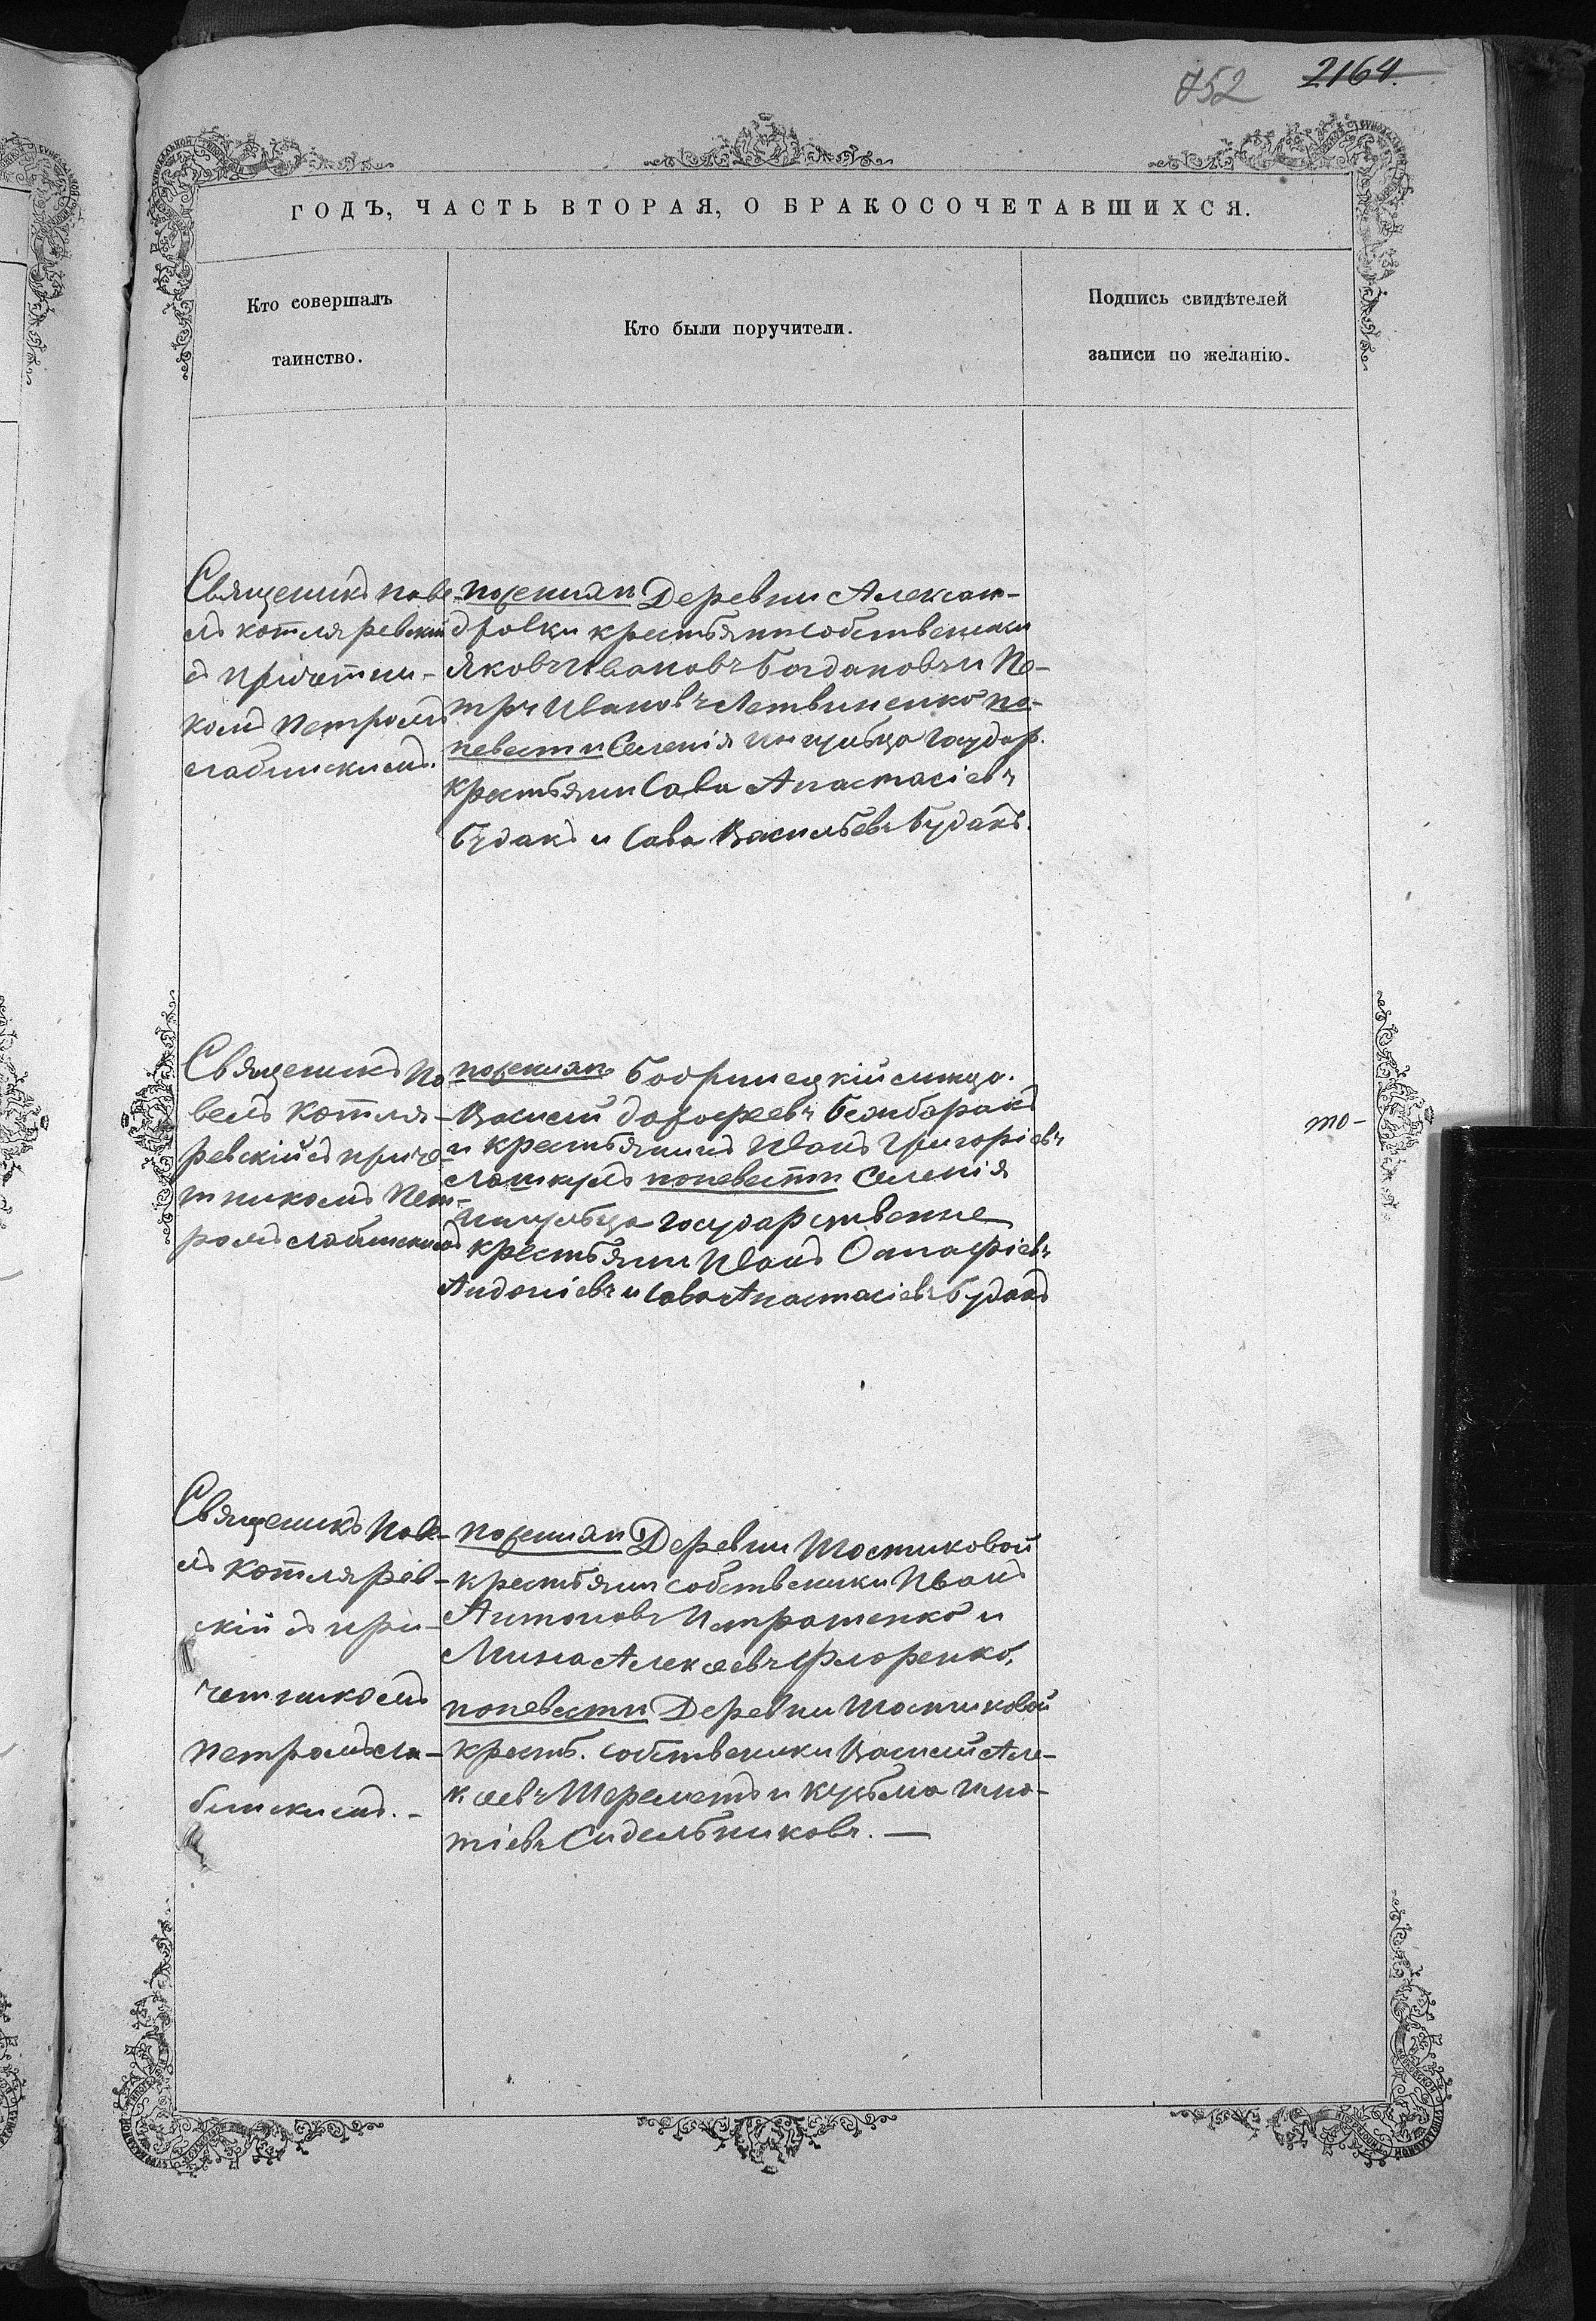 752 2164.
ГОДЪ, ЧАСТЬ ВТОРАЯ, О БРАКОСОЧЕТАВШИХСЯ.
Кто совершалъ
таинство.
Кто были поручители.
Подпись свидѣтелей
записи по желанію.
Священикъ паве-
лъ котляревскій
съ причетни-
комъ Петромъ
слабинскимъ.
пожених Деревни Алексан-
дровки крестьяни собственики
Яковъ Ивановъ Богдановъ и Пе-
тръ Ивановъ Летвиненко по-
невести Селенія Ингульца государ.
крестьяни Сава Анастасіевъ
Будакъ и Сава Васильевъ Будакъ.
Священикъ Па-
велъ Котля-
ревскій съ приче-
тникомъ Пет-
ромъ слабинскимъ
пожених Бобринецкій
Василій дорофеевъ
и крестьянинъ Иванъ Григоріевъ
поневести Селенія
Ингульца государственые
крестьяни Иванъ
Андоніевъ и Сава Анастасіевъ Будакъ
то-
Священикъ Паве-
лъ Котлярев-
скій съ при-
четникомъ
Петромъ сла-
бинскимъ.-
пожених Деревни Шостиковой
крестьяни собственики Иванъ
Антоновъ Петрашенко и
Мина Алексеевъ Флоренко,
поневести Деревни Шостиковой
крестъ. собственики Василій Але-
ксеевъ Шереметъ и Кузьма Игна-
тіевъ Сидельниковъ.—